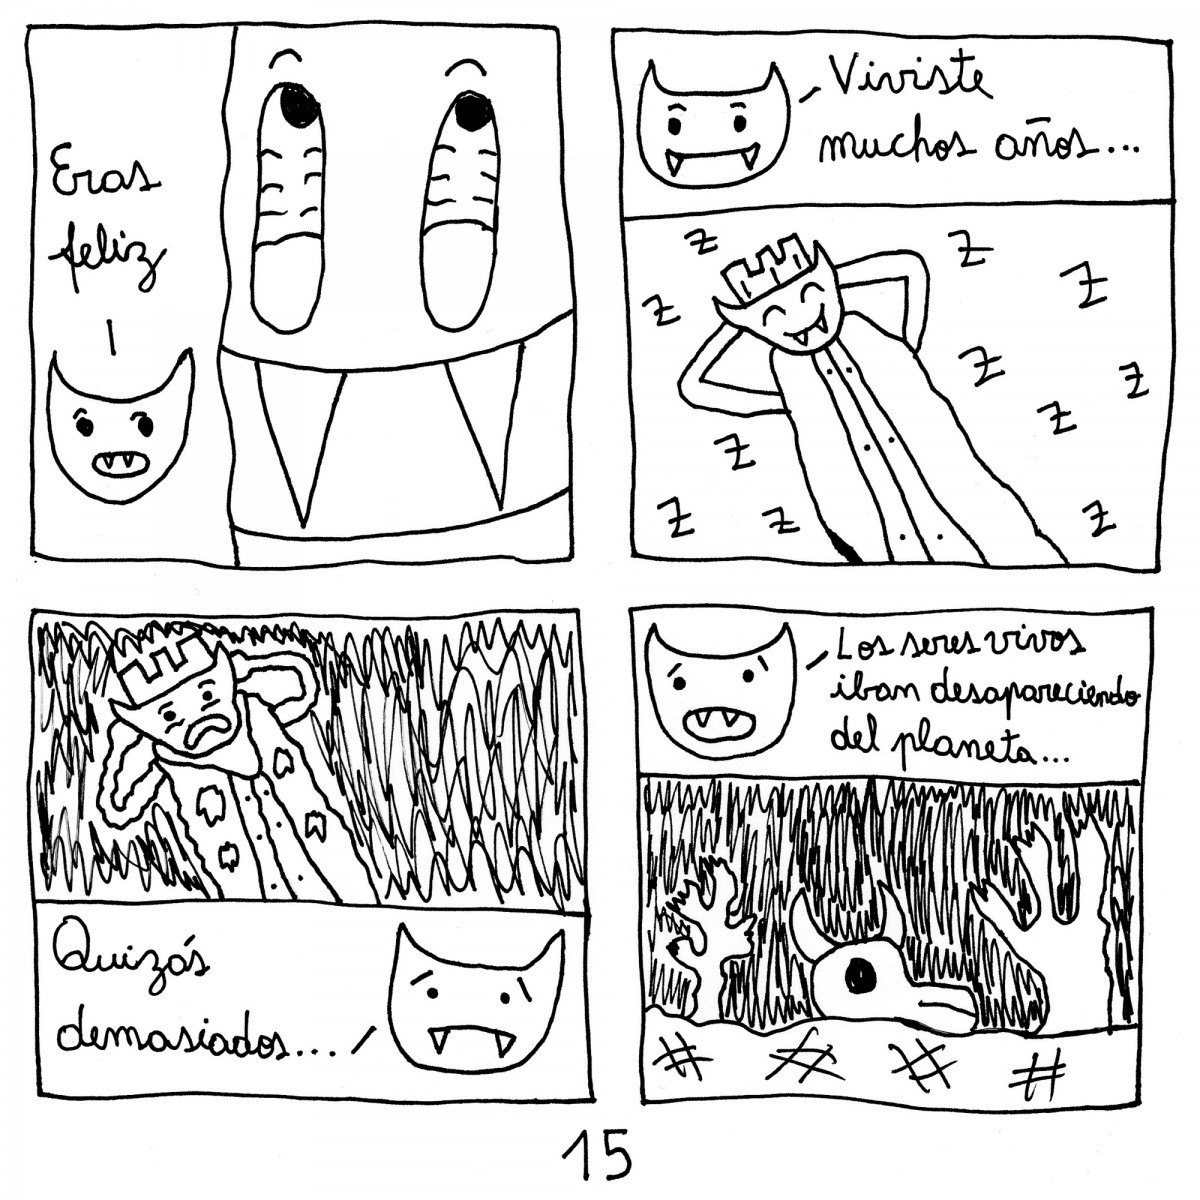 Eras
feliz
Viviste
muchos años...
Z
Z
Z
Z
Z
Z
Z
Z
Z
Z
Z
Quizás
demasiados...
Los seres vivos
iban desapareciendo
del planeta...
15